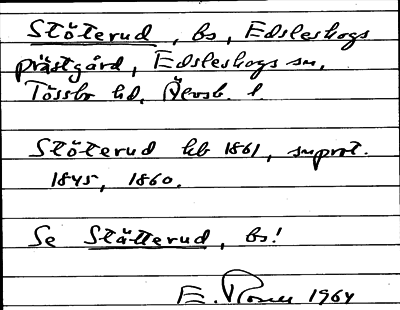 Stöterud, bs, Edsleskogs
prästgård, Edsleskogs sn,
Tössbo hd, Älvsb. l
Stöterud hb 1861, snprot.
1845, 1860.
Se Stätterud, bs!
E. 1964